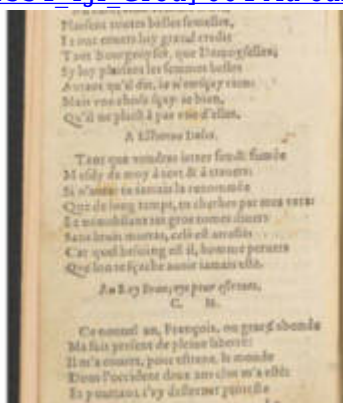 Plaisent toutes belles femelles,
Et ont envers luy grand credit
Tant Bourgeoyses, que Damoyselles;
Sy luy plaisent les femmes belles
Autant qu'il dit, je n'en sçay rien:
Mais une chose sçay-je bien,
Qu'il ne plaist à pas une d'elles.
A Estienne Dolet.
Tant que voudras jetter feu & fumée
Mesdy de moy à tort & à travers:
Si n'auras tu jamais la renommée
Que de long temps, tu cherches par mes vers:
Et nonobstant tes gros tomes divers
Sans bruit mourras, cela est arresté:
Car quel besoing est il, homme pervers
Que l'on te sçache avoir jamais esté.
Au Roy
pour estrenes,
C. M.
Ce nouvel an, François, ou grace abonde
M'a fait present de pleine liberté:
Il m'a ouvert, pour estrene, le monde
Dont l'occident deux ans clos m'a esté:
Et pourtant j'ay